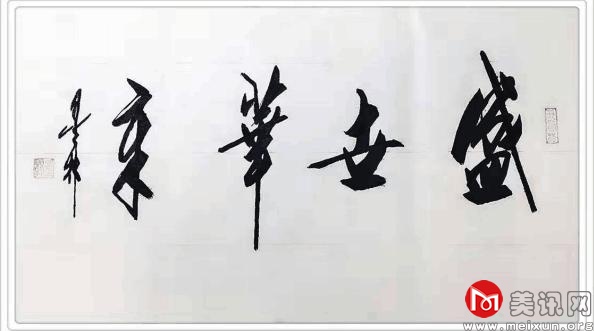 盛世華章
美讯网
www.meixun.org